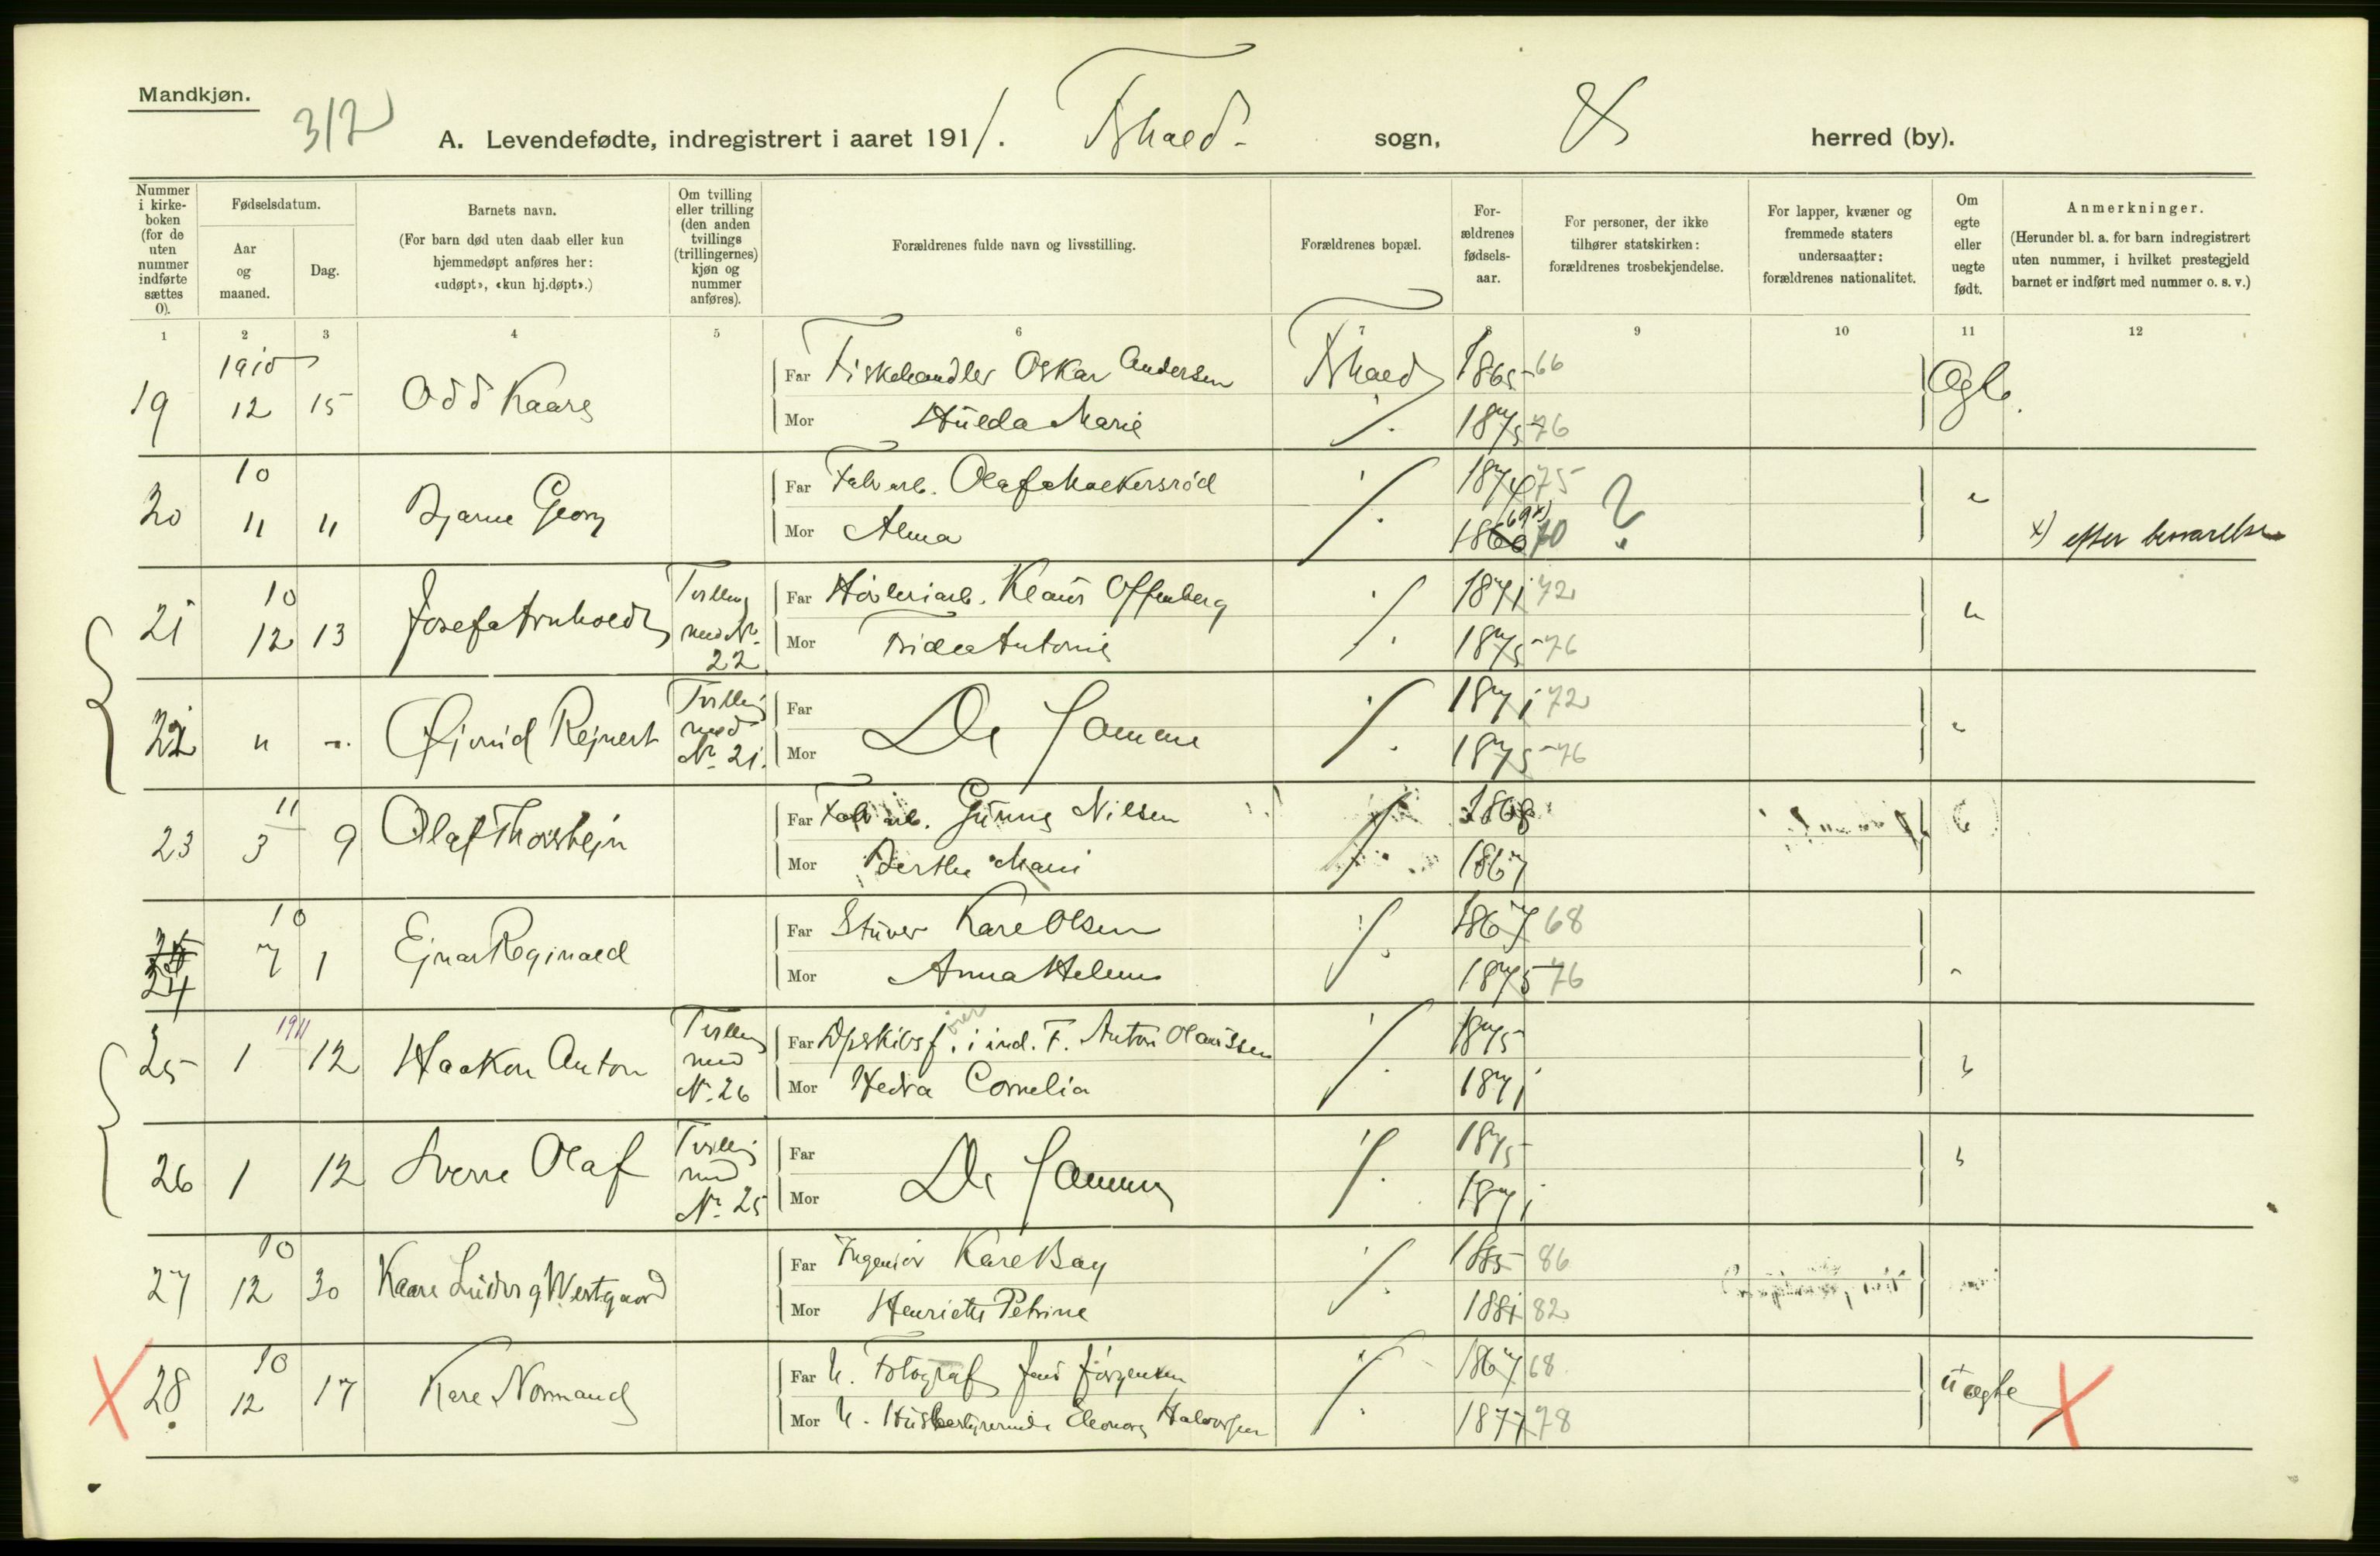 Mandkjøn.
312
A. Levendefødte, indregistrert i aaret 1911. Fr.hald sogn, herred (by).
Nummer i kirke-boken (for de uten nummer indførte sættes 0).
Fødselsdatum.
Aar og maaned.
Dag.
Barnets navn.
(For barn død uten daab eller kun hjemmedøpt anføres her: «udøpt», «kun hj.døpt».)
Om tvilling eller trilling (den anden tvillings (trillingernes) kjøn og nummer anføres).
Forældrenes fulde navn og livsstilling.
Forældrenes bopæl.
For-ældrenes fødsels-aar.
For personer, der ikke tilhører statskirken: forældrenes trosbekjendelse.
For lapper, kvæner og fremmede staters undersaatter: forældrenes nationalitet.
Om egte eller uegte født.
Anmerkninger.
(Herunder bl. a. for barn indregistrert uten nummer, i hvilket prestegjeld barnet er indført med nummer o. s. v.)
1 2 3 4 5 6 7 8 9 10 11 12
19 1910 12 15 Odd Kaare Far Fiskehandler Oskar Andersen Fr.hald 1865-66 Ægte
Mor Hulda Marie 1875-76
20 10 11 11 Bjarne Georg Far Fabr.arb. Olaf Makersrød 1874 75 "
Mor Alma 1860 69 x) 70 ? x) efter besvarelse
21 10 12 13 Josef Arnholdt Tvilling med Nr. 22 Far Høvleriarb. Klaus Offenberg 1871 72 "
Mor Frida Antonie 1875-76
22 " " Øjvind Rejnert Tvilling med Nr. 21. Far De samme 1871 72 "
Mor 1875-76
23 11 3 9 Olaf Thorstejn Far Fabr.arb. Gunne Nilsen 1868
Mor Berthe Marie 1867
24 10 7 1 Ejnar Reginald Far Stuver Karl Olsen 1867 68
Mor Anna Helene 1875 76 "
25 1911 1 12 Haakon Anton Tvilling med Nr. 26 Far Opskibsf. i ind. F. Anton Olaussen 1875 "
Mor Hedva Cornelia 1871
26 1 12 Sverre Olaf Tvilling med Nr. 25 Far De samme 1875 "
Mor 1871
27 10 12 30 Kaare Ludvig Westgaard Far Ingeniør Karl Bay 1885 86
Mor Henriette Petrine 1881 82
28 10 12 17 Kare Normand Far U. Fotograf Jens Jørgensen 1867 68 uægte
Mor U. Husbestyrerinde Eleonora Halvorsen 1877 78